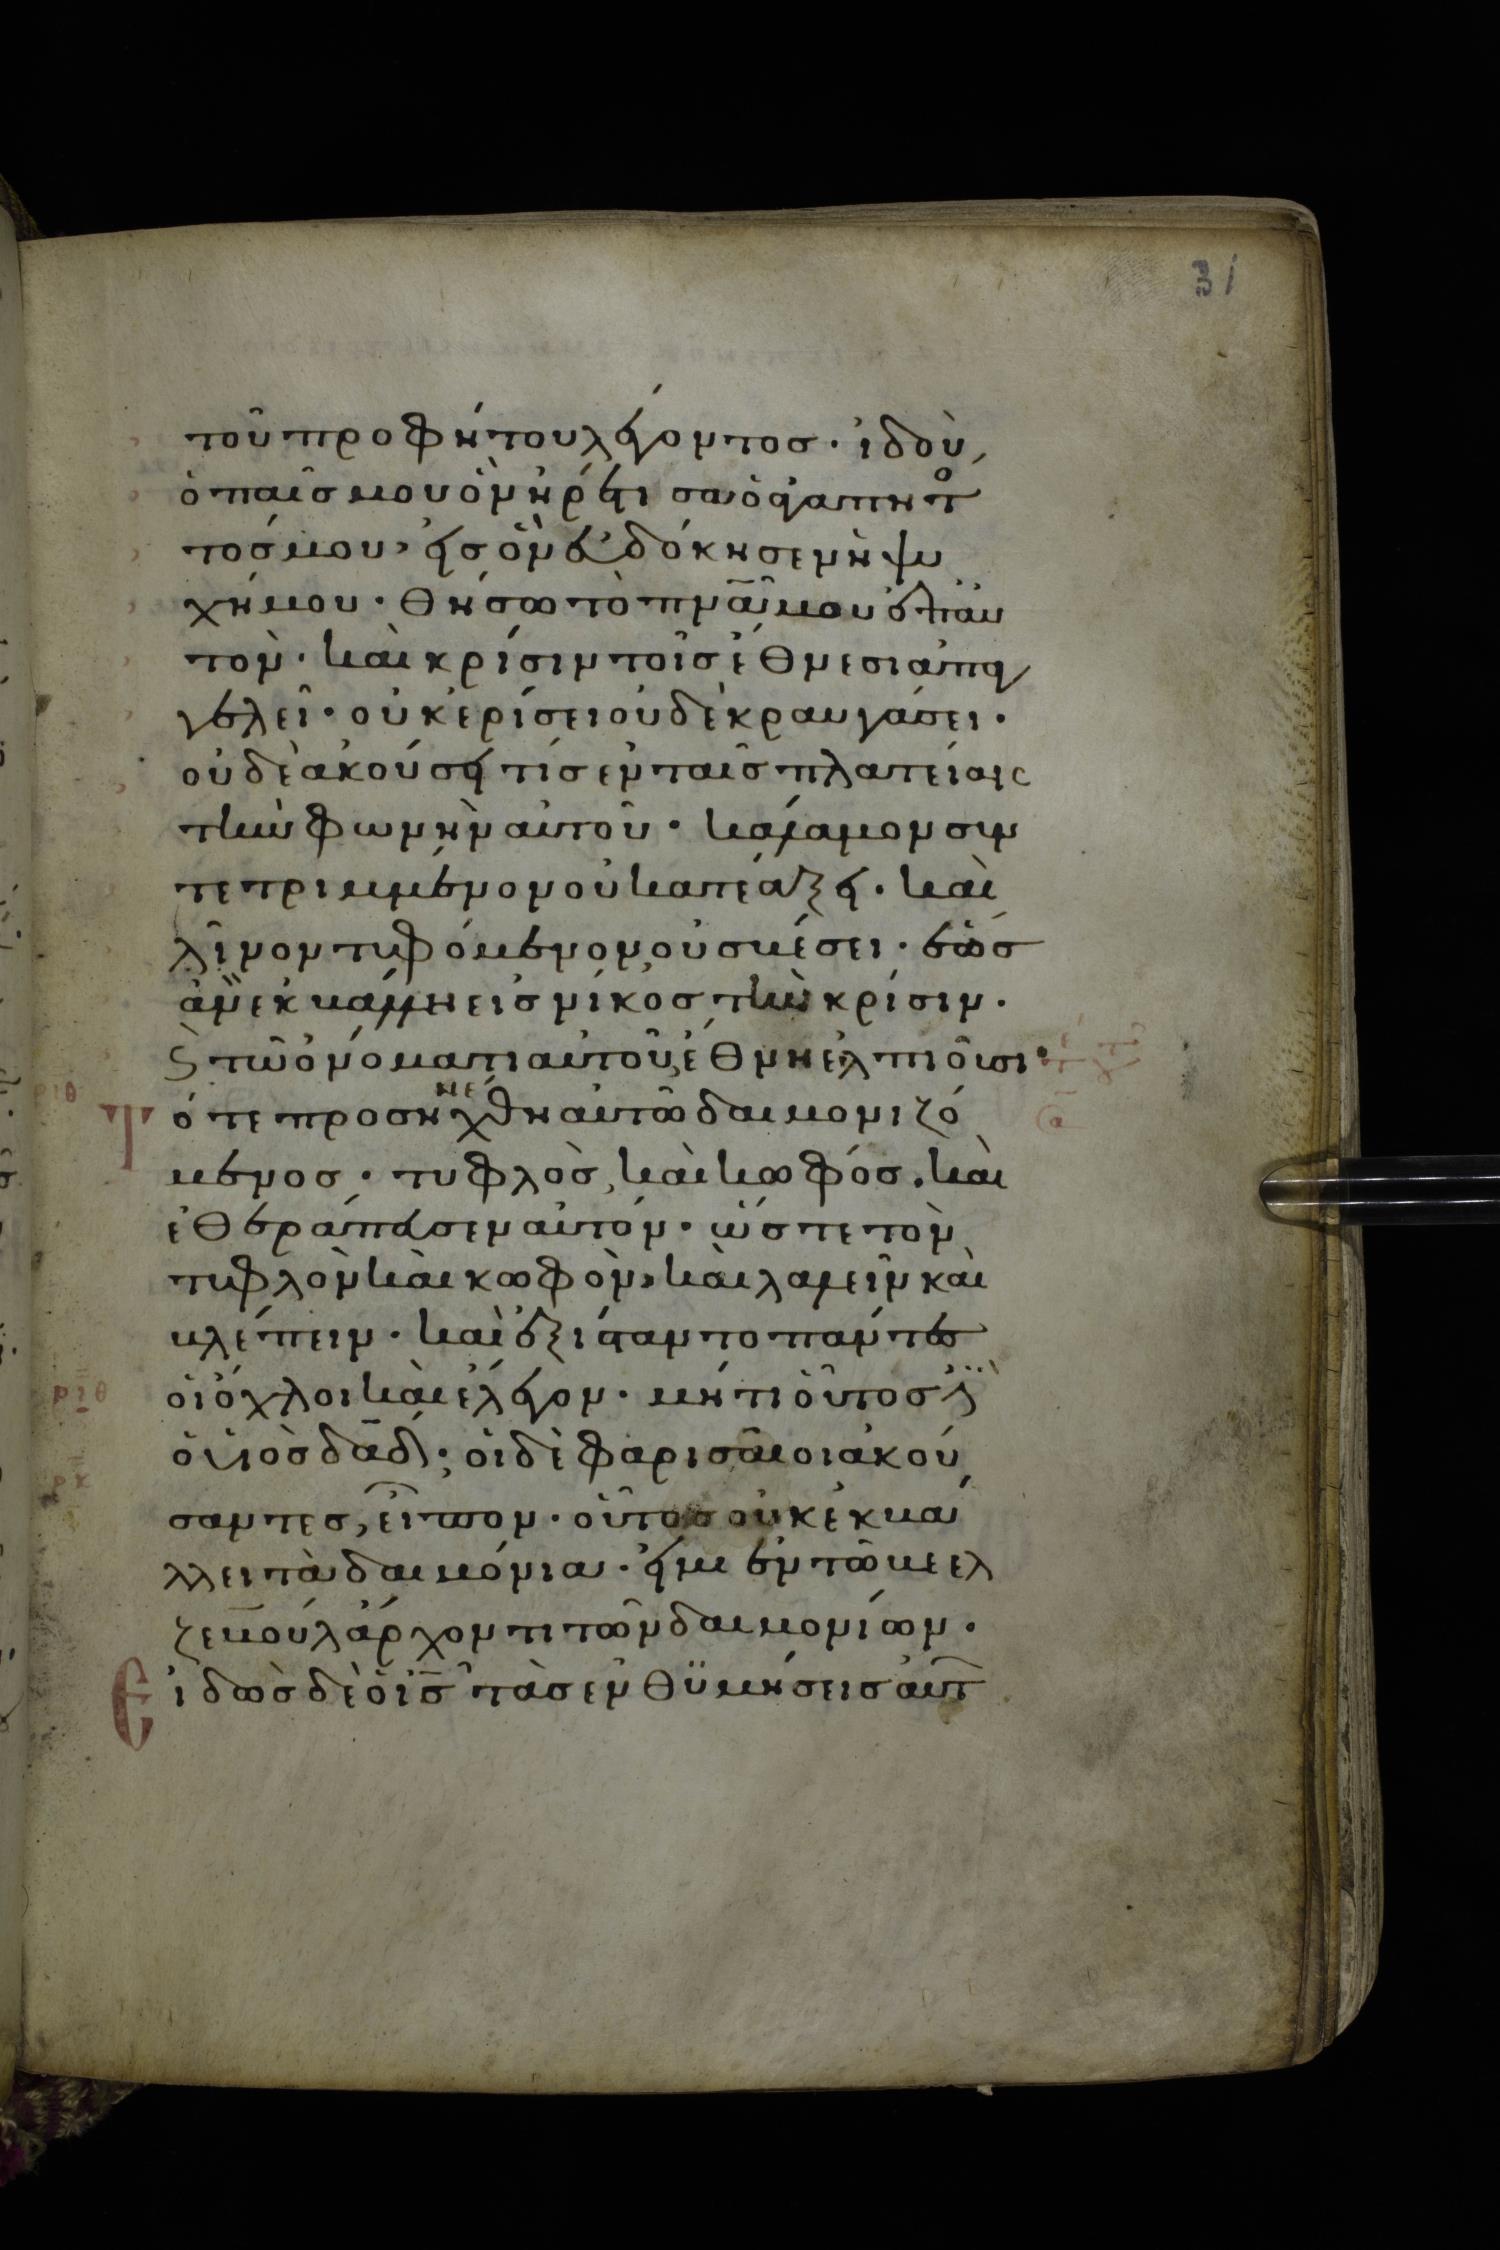 31
τοῦ προφήτου λέγοντος· ἰδοὺ,
ὁ παῖς μου ὃν ἡρέτισα ὁ ἀγαπητο
τός μου, εἰς ὃν εὐδόκησεν ἡ ψυ
χή μου· θήσω τὸ πνα̅ μου ἐπ' αὐ
τὸν· καὶ κρίσιν τοῖς ἔθνεσι ἀπαγ
γελεῖ· οὐκ ἐρίσει οὐδὲ κραυγάσει·
οὐδὲ ἀκούσει τίς ἐν ταῖς πλατείαις
τὴν φωνὴν αὐτοῦ· κάλαμον συν
τετριμμένον οὐ κατεάξει· καὶ
λίνον τυφόμενον οὐ σβέσει· ἕως
ἂν ἐκβάλλη εἰς νίκος τὴν κρίσιν·
ϗ τῶ ὀνόματι αὐτοῦ ἔθνη ἐλπιοῦσι·
ριθ Τότε προσηνέχθη αὐτῶ δαιμονιζό
μενος· τυφλὸς, καὶ κωφός· καὶ
ἐθεράπευσεν αὐτόν· ὥστε τὸν
τυφλὸν καὶ κωφὸν, καὶ λαλεῖν καὶ
βλέπειν· καὶ ἐξίσταντο πάντες
ριθ οἱ ὄχλοι καὶ ἔλεγον· μήτι οὗτος ἐστὶν
ὁ υἱὸς δα̅δ· οἱ δὲ φαρισαῖοι ἀκού
ρκ σαντες, εἶπον· οὗτος οὐκ ἐκβά
λλει τὰ δαιμόνια· εἰ μὴ ἐν τῶ βεελ
ζεβοὺλ ἄρχοντι τῶν δαιμονίων·
Εἰδὼς δὲ ὁ ις̅ τὰς ἐνθϋμήσεις αὐτ